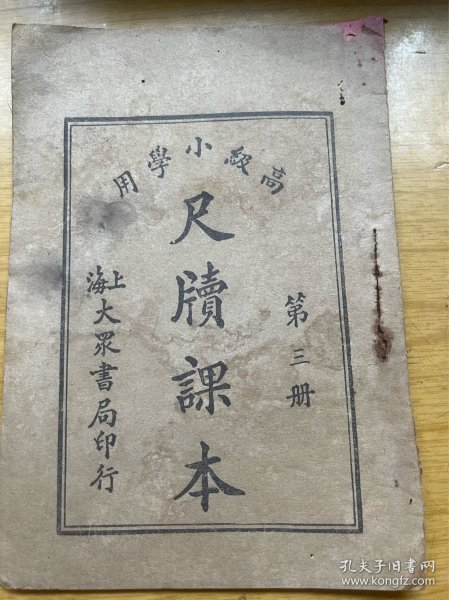 高級小學用
第三册
尺牘課本
上海大眾書局印行
孔夫子旧书网
www.kongfz.com